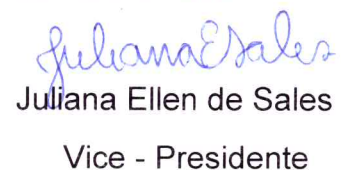 JulianaESales
Juliana Ellen de Sales
Vice - Presidente